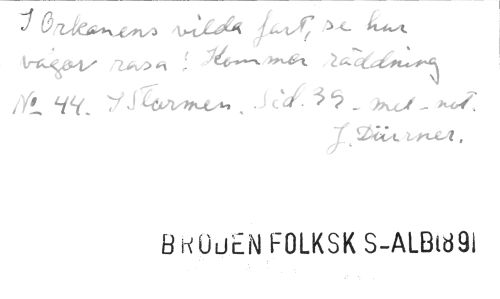 I Orkanens vilda fart, se hur
vågor rasa! Kommer räddning
No 44. I Stormen. Sid. 39 - mel - not.
J. Dürner.
BRODEN FOLKSK S-ALB(891